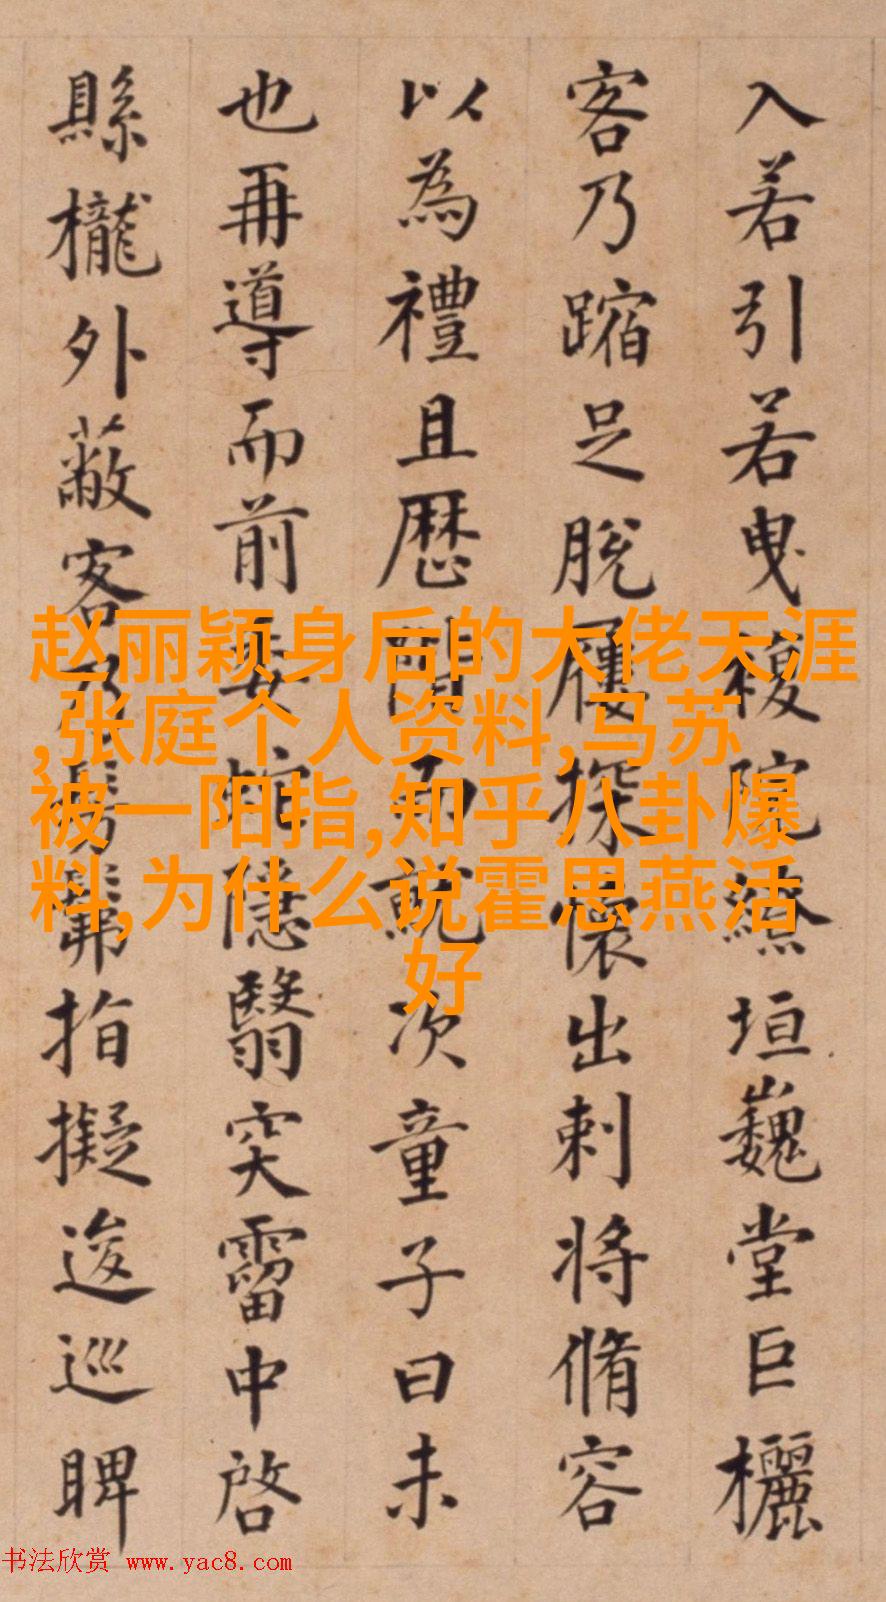 入若引若曳複院繚垣巍堂巨欐
客乃蹜足脫屨探懷出刺將脩容
以為禮且歷閣而就次童子曰未
也再導而前委蛇隱翳突霤中啓
縣櫳外蔽客乃髣髴指擬逡巡睥
赵丽颖身后的大佬天涯
,张庭个人资料,马苏
被一阳指,知乎八卦爆
料,为什么说霍思燕活
好
书法欣赏 www.yac8.com